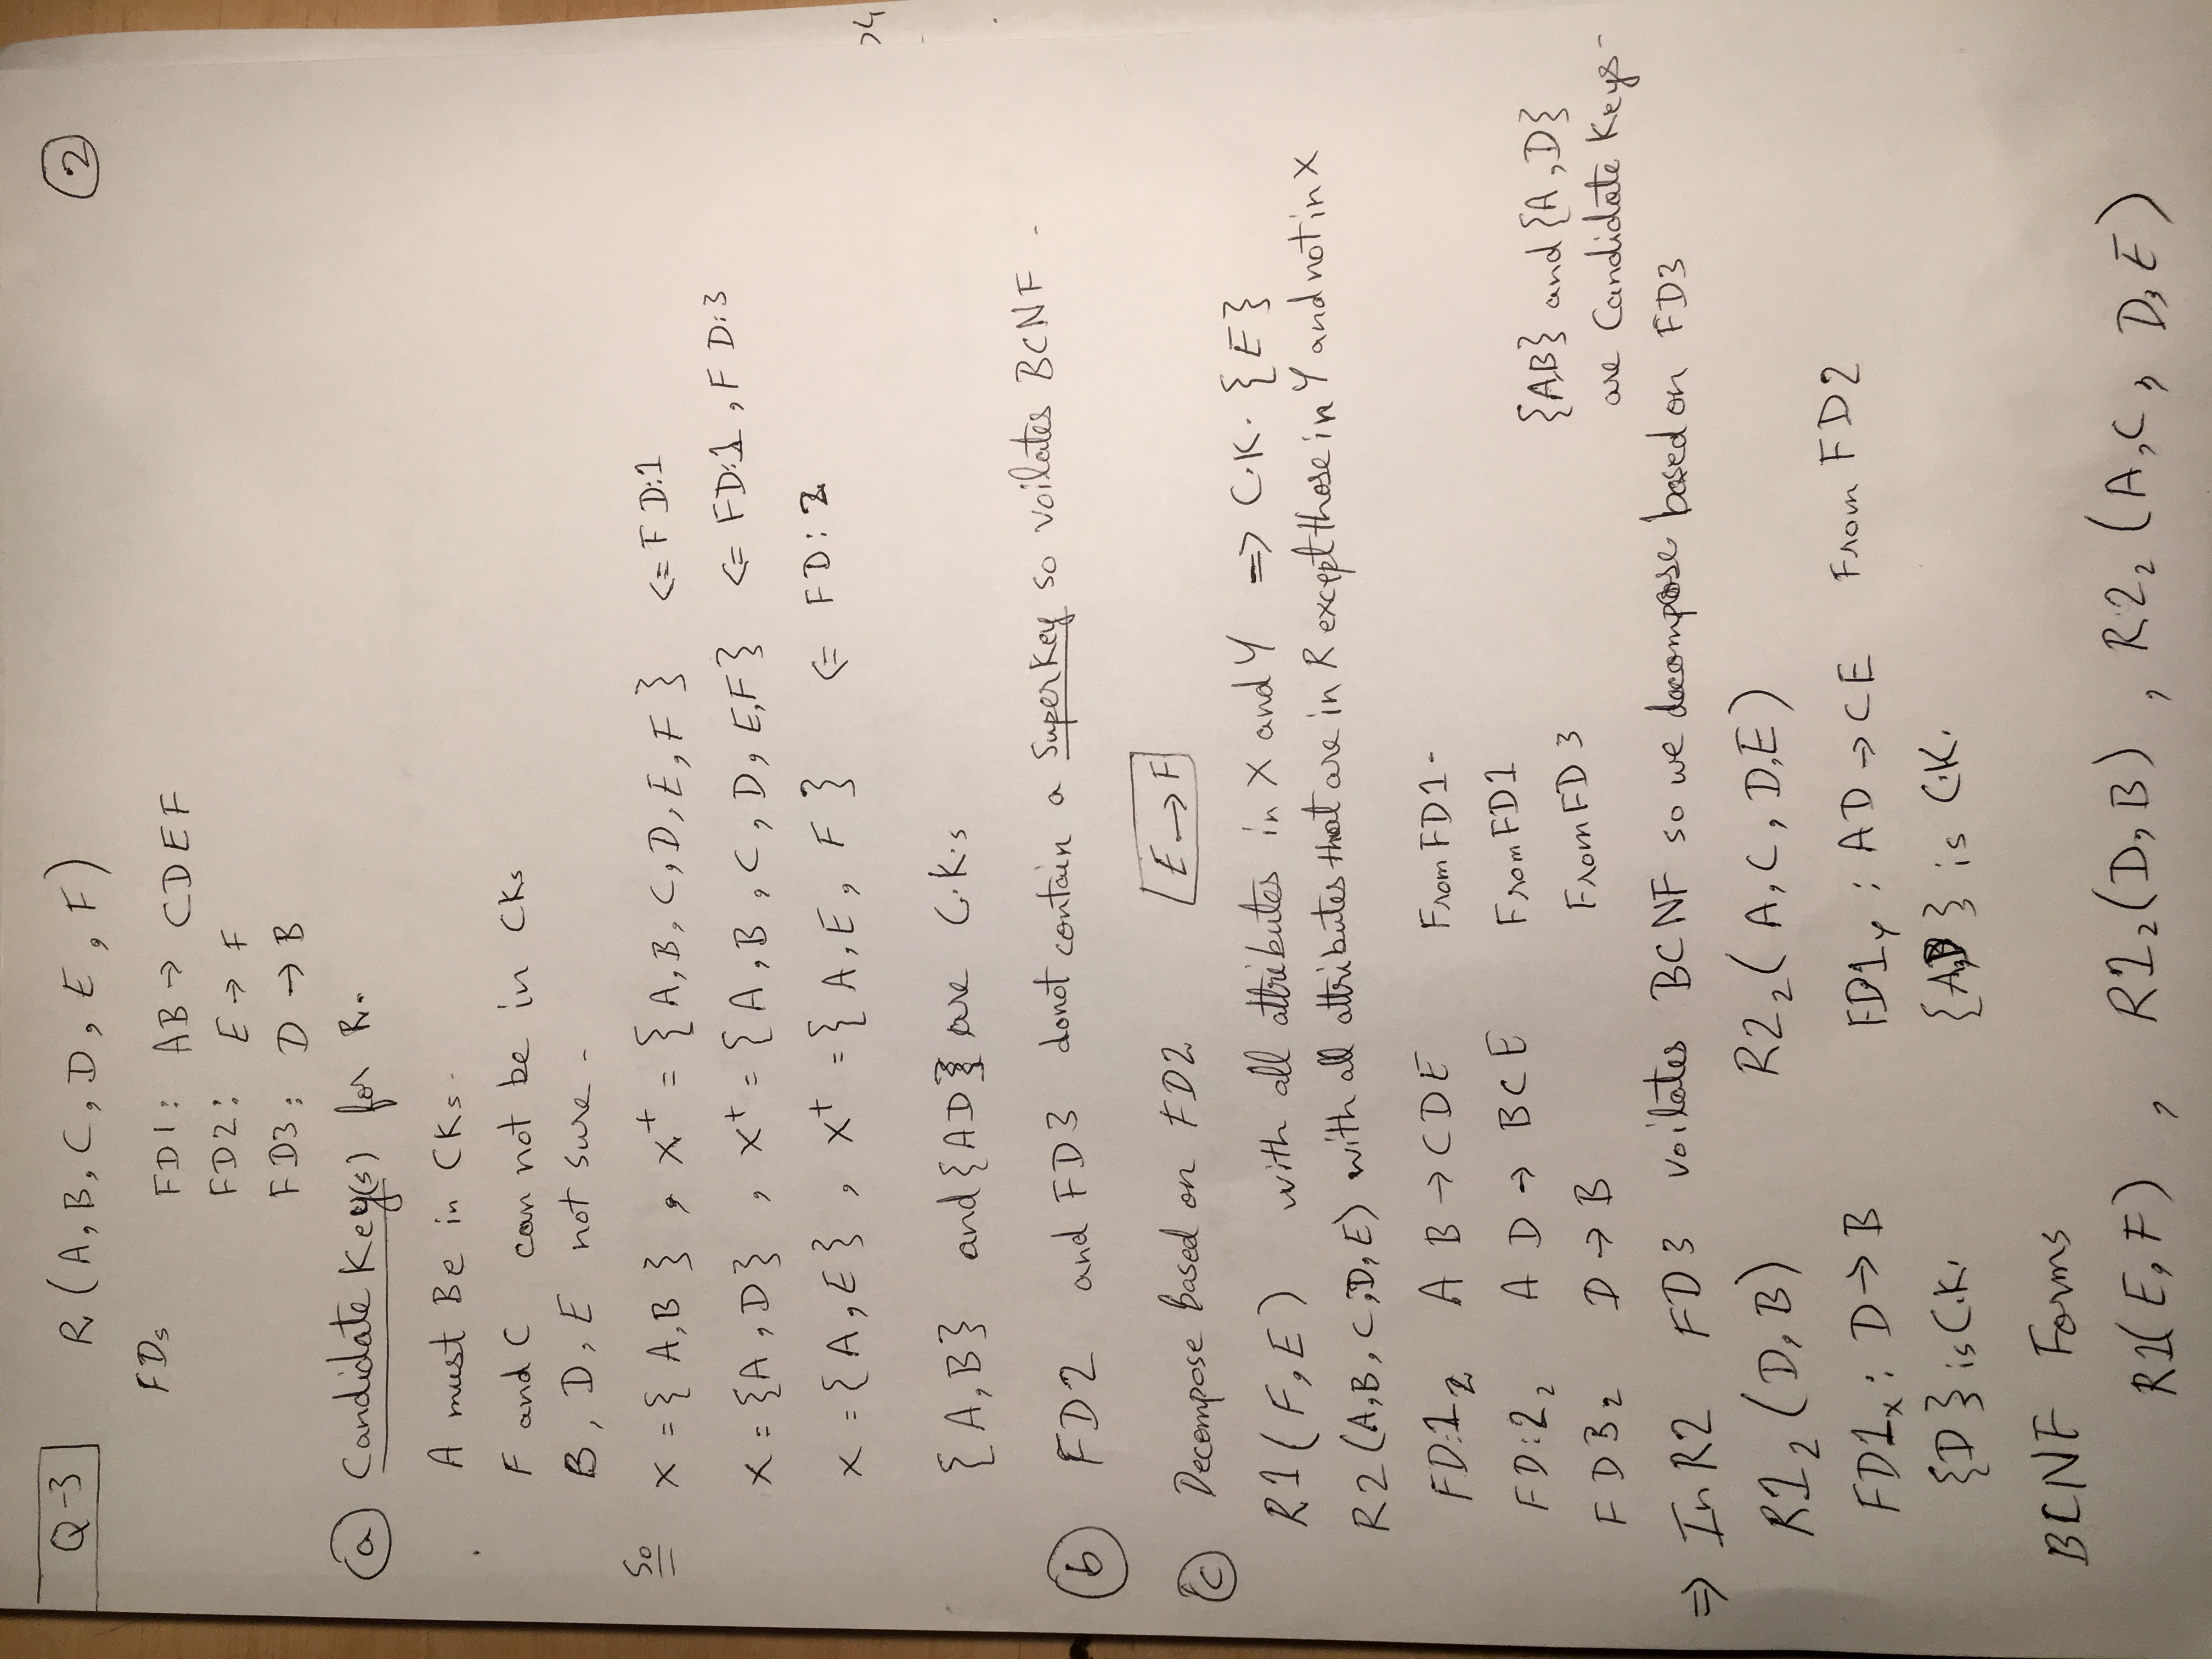 Q-3 R (A, B, C, D, E, F) 2
FDs FD1: AB → CDEF
FD2: E → F
FD3: D → B
a Candidate Key(s) for R.
A must Be in CKs.
F and C can not be in CKs
B, D, E not sure -
So X = { A,B } , X+ = { A, B, C, D, E, F } <= FD:1
X = {A, D} , X+ = { A, B, C, D, E,F } <= FD:1, FD:3
X = { A, E } , X+ = { A, E, F } <= FD: 2
{ A, B} and {AD} are C.K.s
b FD2 and FD3 donot contain a SuperKey so voilates BCNF -
c Decompose Based on FD2 E → F
R1 ( F, E ) with all attributes in X and Y => C.K. {E}
R2 (A,B, C,D, E) with all attributes that are in R except those in Y and not in X
FD:12 A B → CDE From FD1-
FD:22 A D → BCE From FD1
FD32 D → B From FD3
{AB} and {A, D}
are Candidate Keys-
=> In R2 FD3 voilates BCNF so we decompose based on FD3
R12 (D, B) R22 ( A, C, D,E)
FD1x : D → B FD1y : AD → CE From FD2
{D} is C.K. {A,D} is C.K.
BCNF Forms
R1( E, F ) , R12 (D, B) , R22 (A, C, D, E)